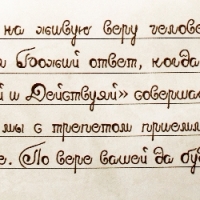 на живую веру челове
Божий ответ, когда
й и Действуяй» соверша
мы с трепетом приемл
е. (По вере вашей да буд